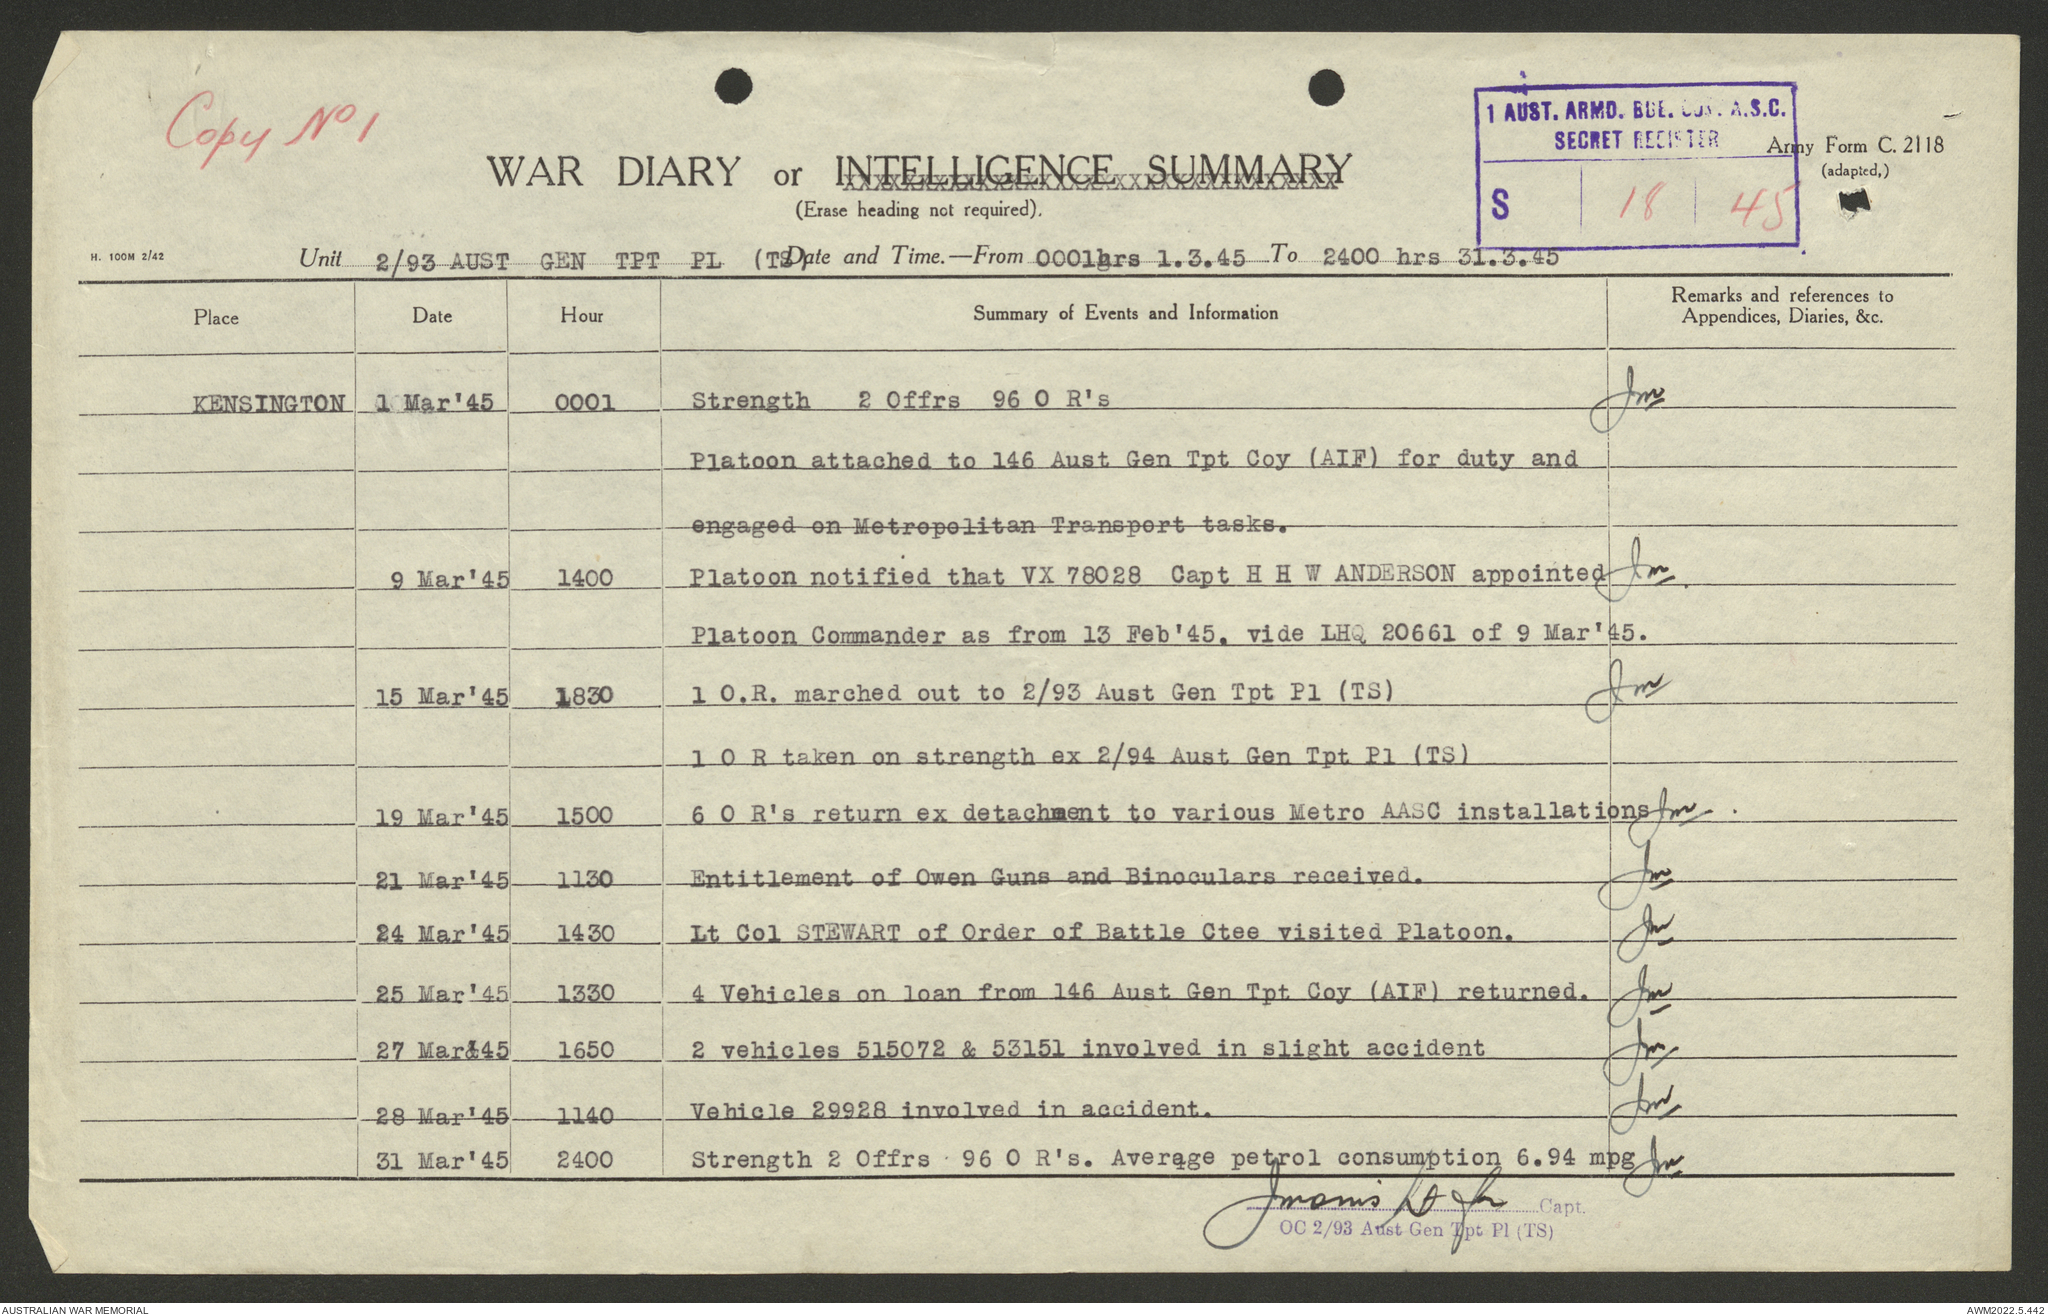 Copy No 1
1 AUST. ARMD. BDE. COY. A.S.C.
SECRET REGISTER
S 18 45
Army Form C. 2118
(adapted,)
WAR DIARY or INTELLIGENCE SUMMARY
(Erase heading not required).
H. 100M 2/42
Unit 2/93 AUST GEN TPT PL (TS) Date and Time.—From 0001hrs 1.3.45 To 2400 hrs 31.3.45
Place Date Hour Summary of Events and Information Remarks and references to
Appendices, Diaries, &c.
KENSINGTON 1 Mar'45 0001 Strength 2 Offrs 96 O R's Jm
Platoon attached to 146 Aust Gen Tpt Coy (AIF) for duty and
engaged on Metropolitan Transport tasks.
9 Mar'45 1400 Platoon notified that VX 78028 Capt H H W ANDERSON appointed Jm
Platoon Commander as from 13 Feb'45. vide LHQ 20661 of 9 Mar'45.
15 Mar'45 1830 1 O.R. marched out to 2/93 Aust Gen Tpt Pl (TS) Jm
1 O R taken on strength ex 2/94 Aust Gen Tpt Pl (TS)
19 Mar'45 1500 6 O R's return ex detachment to various Metro AASC installations Jm
21 Mar'45 1130 Entitlement of Owen Guns and Binoculars received. Jm
24 Mar'45 1430 Lt Col STEWART of Order of Battle Ctee visited Platoon. Jm
25 Mar'45 1330 4 Vehicles on loan from 146 Aust Gen Tpt Coy (AIF) returned. Jm
27 Mar'45 1650 2 vehicles 515072 & 53151 involved in slight accident Jm
28 Mar'45 1140 Vehicle 29928 involved in accident. Jm
31 Mar'45 2400 Strength 2 Offrs 96 O R's. Average petrol consumption 6.94 mpg Jm
Lt for Capt.
OC 2/93 Aust Gen Tpt Pl (TS)
AUSTRALIAN WAR MEMORIAL
AWM2022.5.442